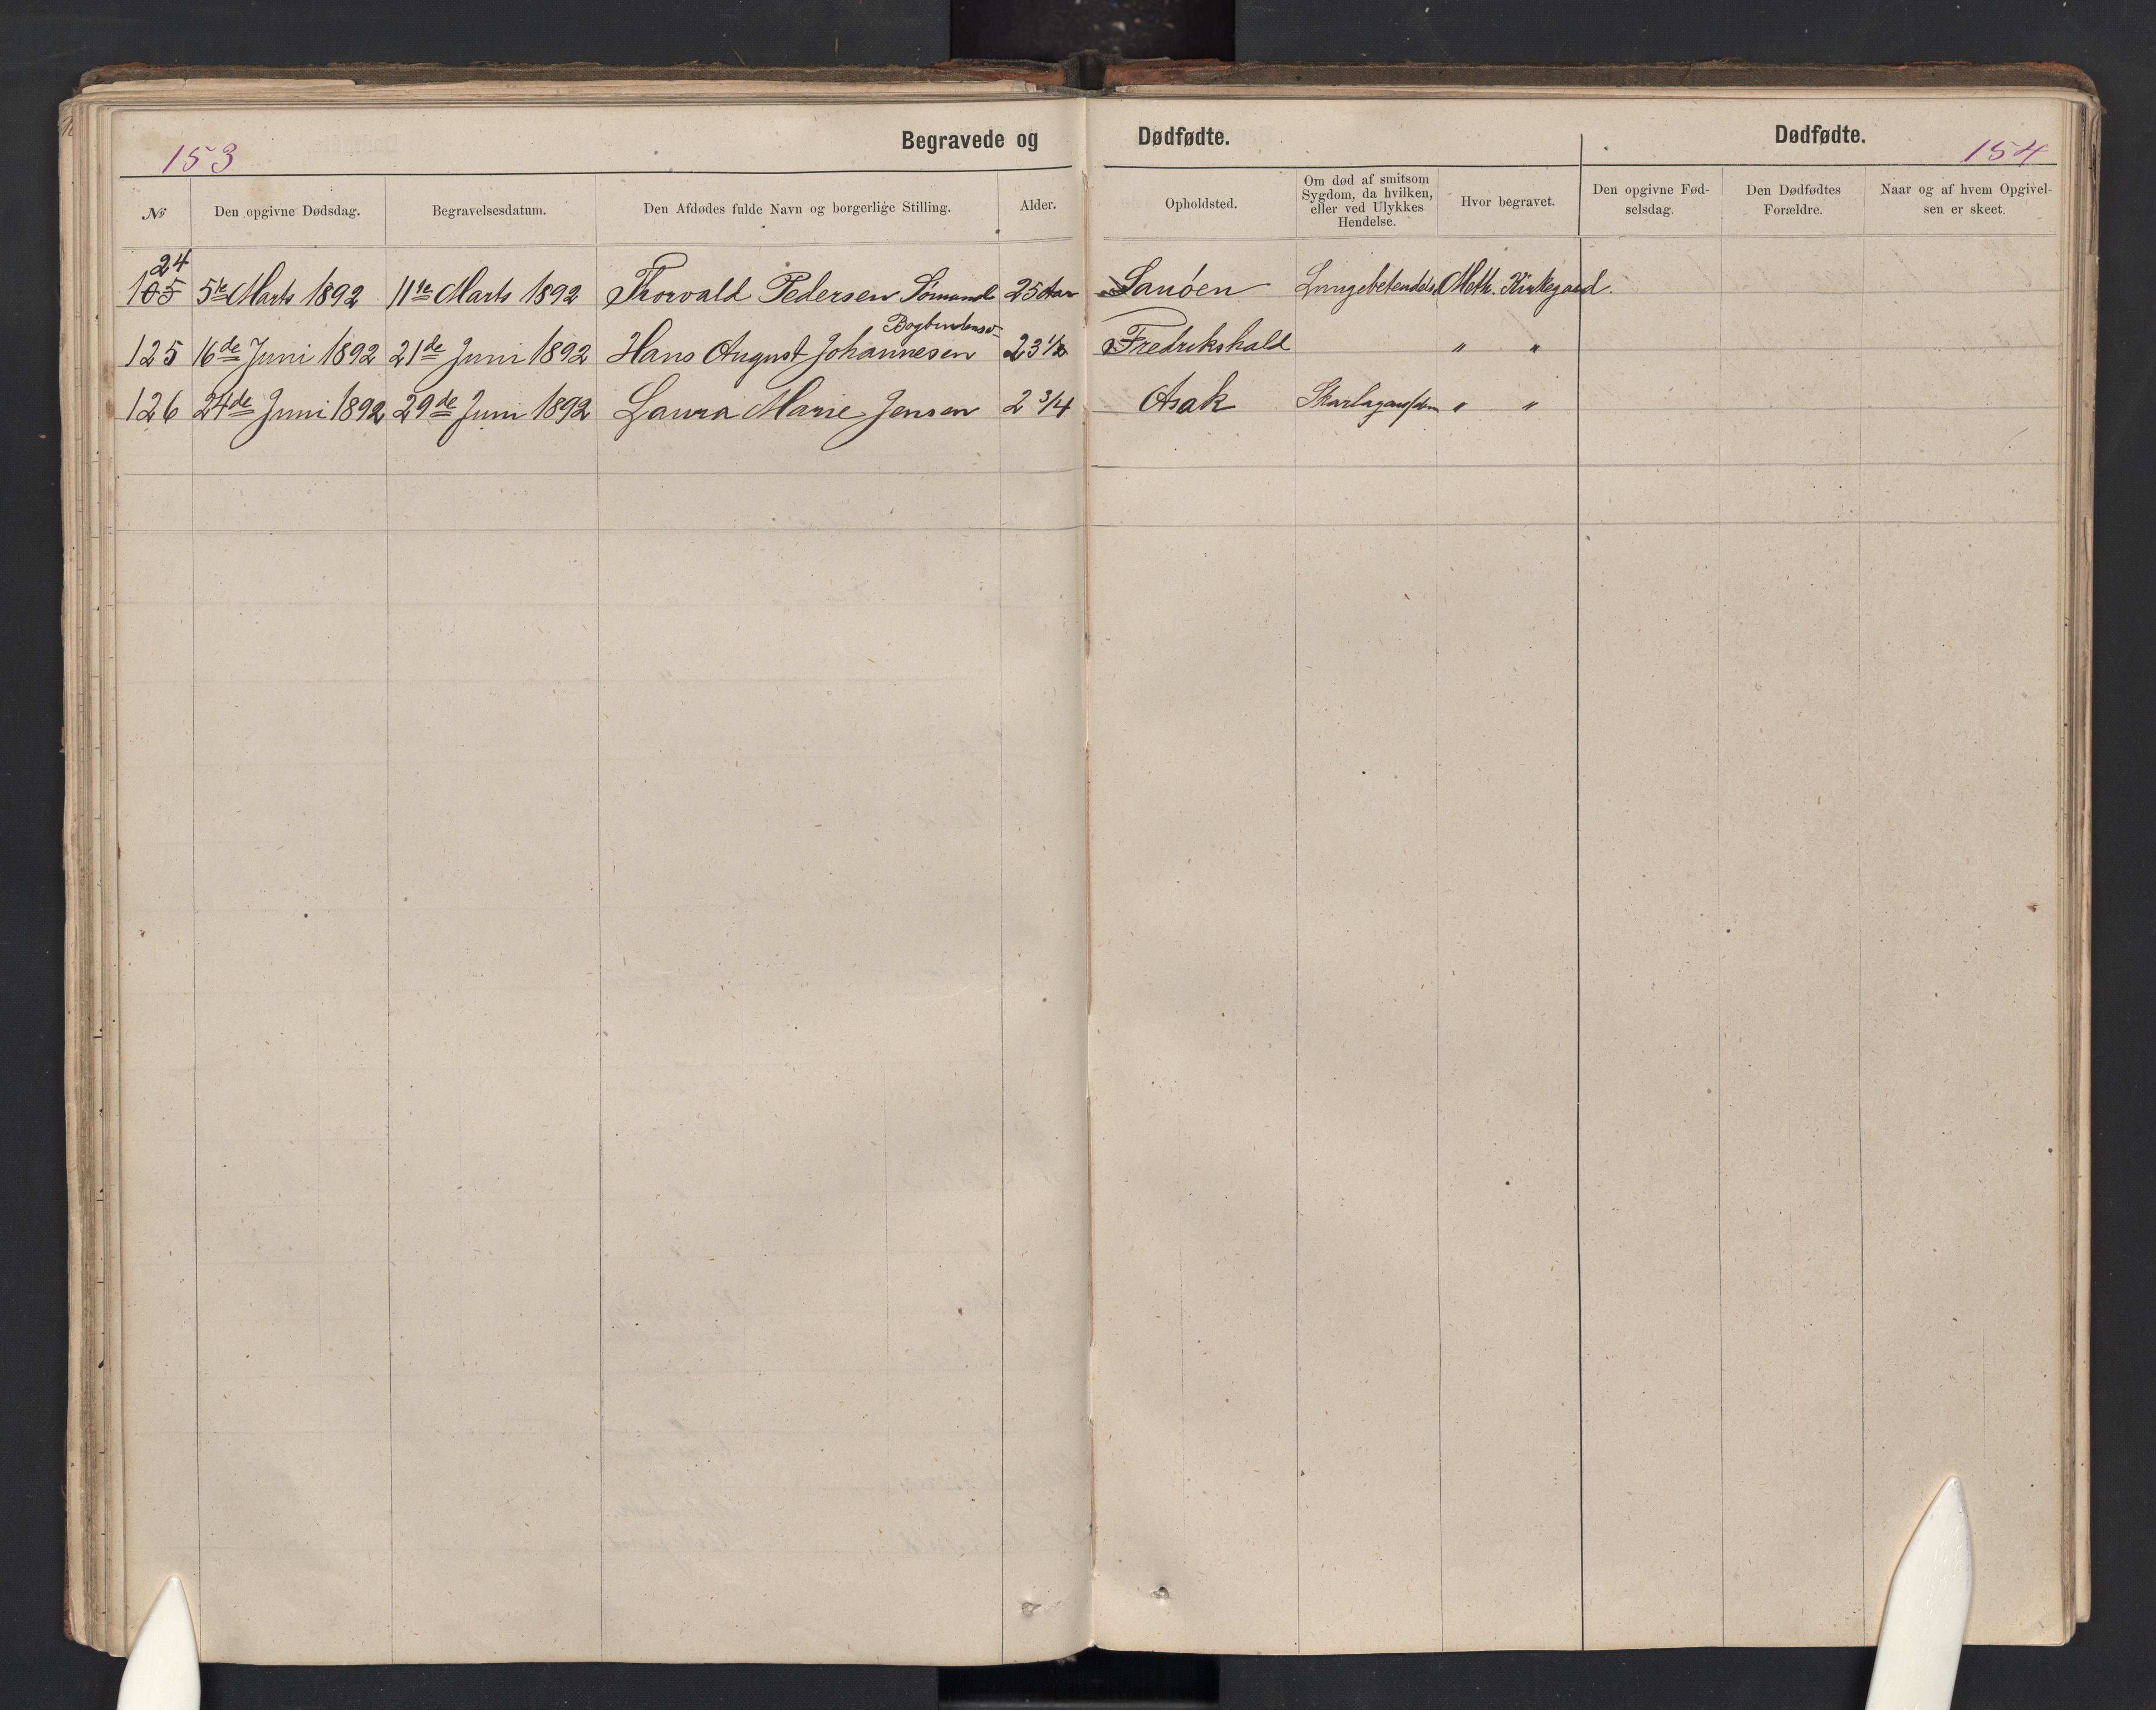 153
Begravede og Dødfødte.
Dødfødte.
154
№
Den opgivne Dødsdag.
Begravelsesdatum.
Den Afdødes fulde Navn og borgerlige Stilling.
Alder.
Opholdsted.
Om død af smitsom
Sygdom, da hvilken,
eller ved Ulykkes
Hendelse.
Hvor begravet.
Den opgivne Fød-
selsdag.
Den Dødfødtes
Forældre.
Naar og af hvem Opgivel-
sen er skeet.
24
105 5te Marts 1892 11te Marts 1892 Thorvald Pedersen Sømand 25 Aar Sauøen Lungebetendelse Meth. Kirkegaard.
Bogbindersv.
125 16de Juni 1892 21de Juni 1892 Hans August Johannesen 23 1/2 Fredrikshald " "
126 24de Juni 1892 29de Juni 1892 Laura Marie Jensen 2 3/4 Asak " "